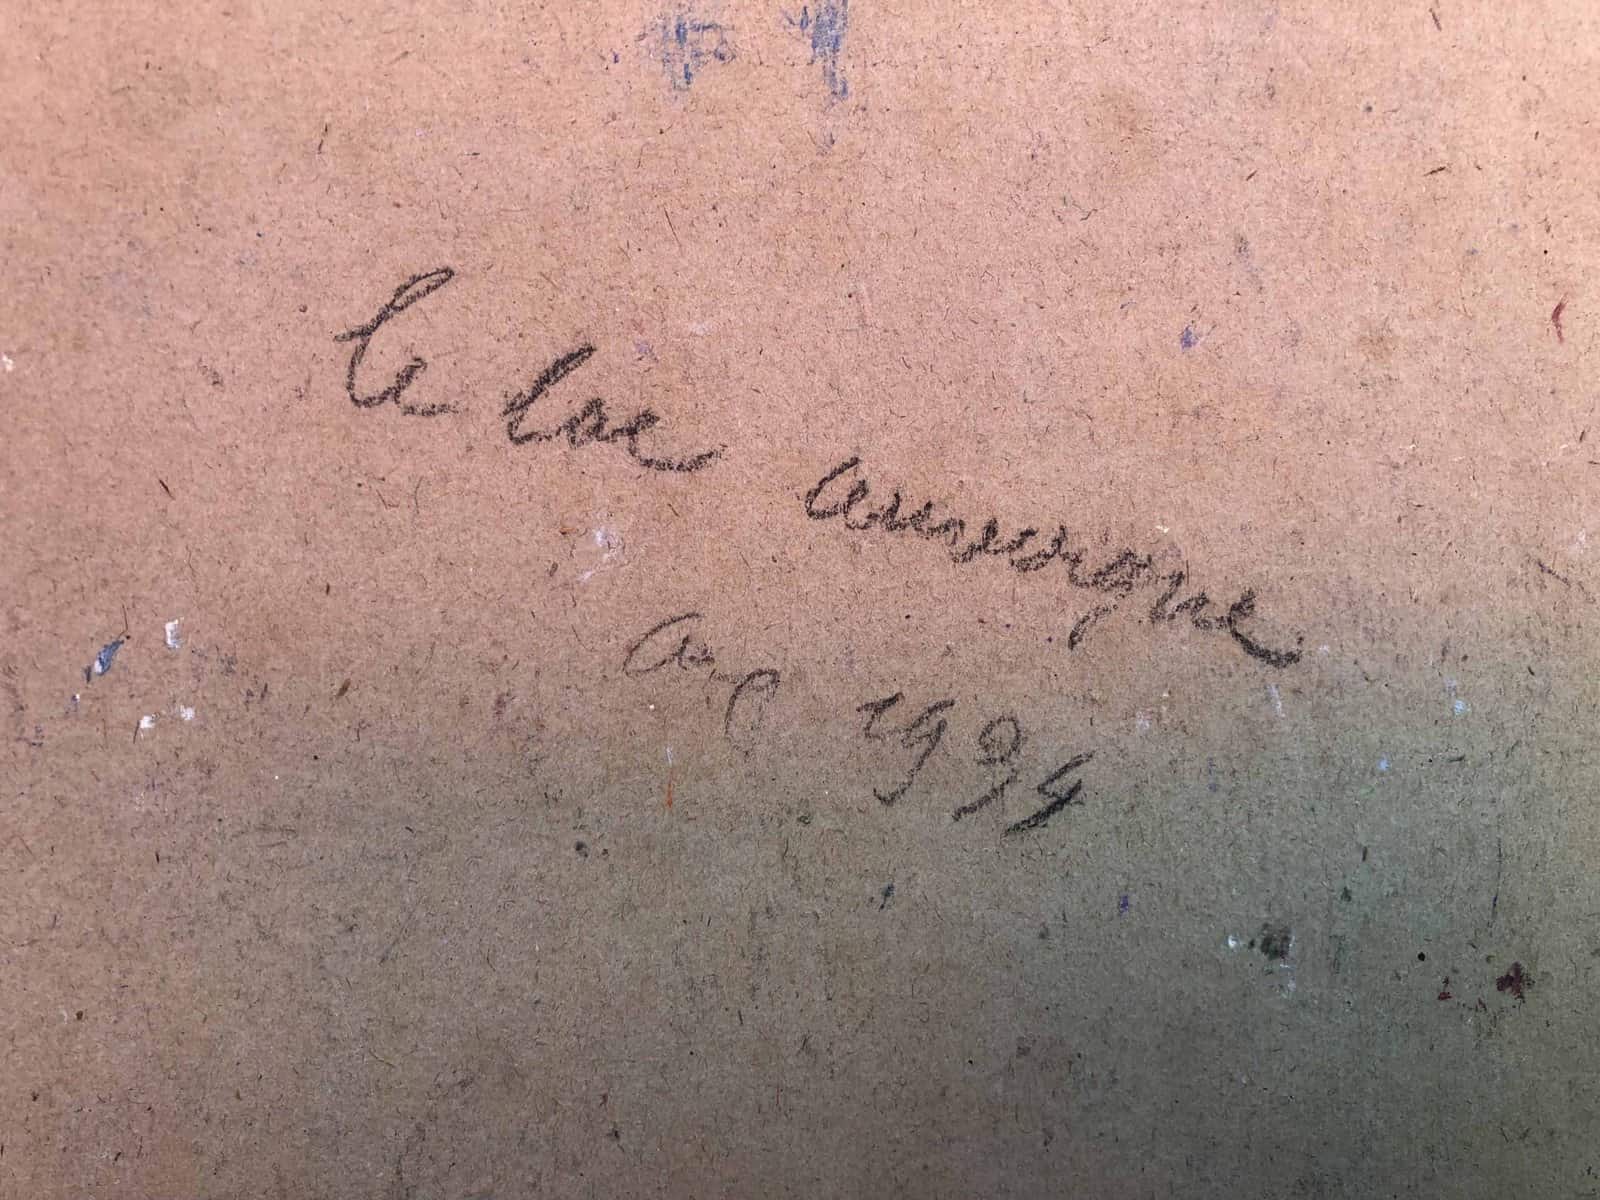 le lac auvergne
aug 1934